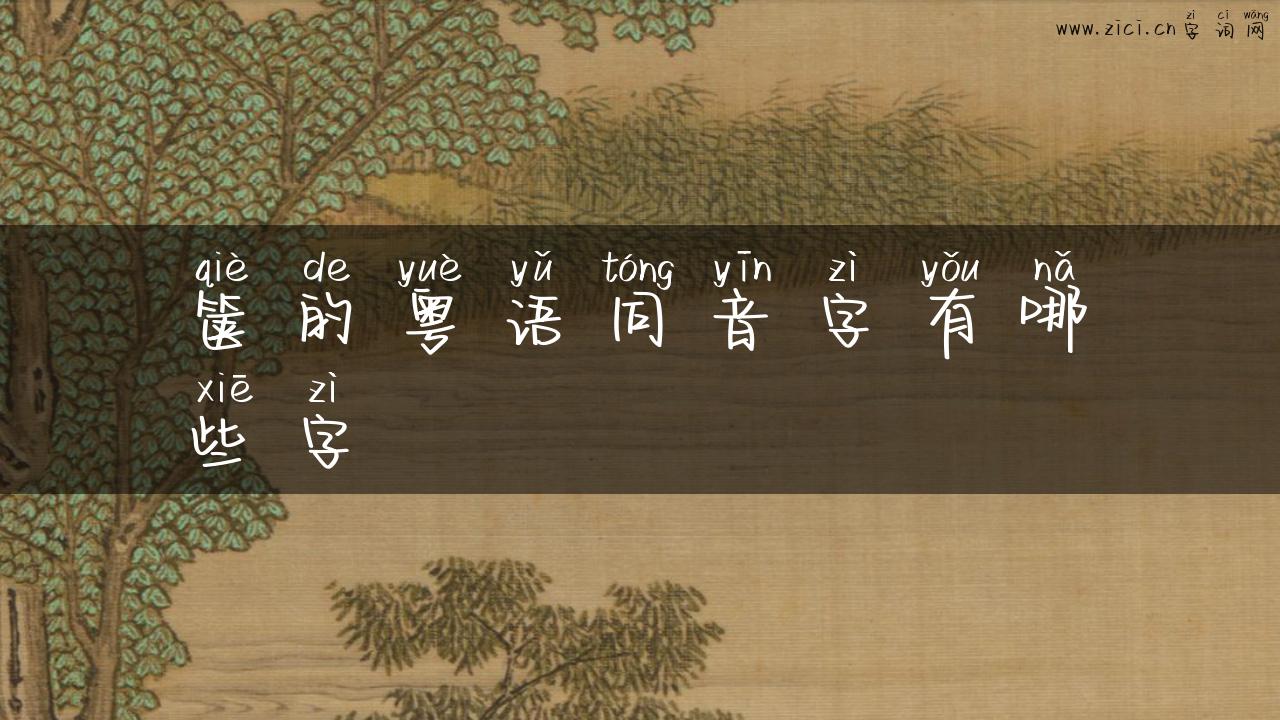 zì cí wǎng
www.zici.cn字词网
qiè de yuè yǔ tóng yīn zì yǒu nǎ
箧的粤语同音字有哪
xiē zì
些字